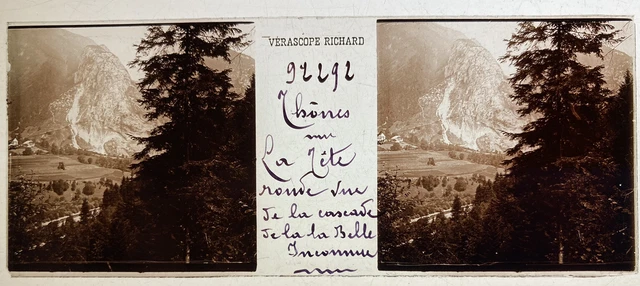 VÉRASCOPE RICHARD
92292
Thônes
La Tête
ronde vue
de la cascade
de la la Belle
Inconnue